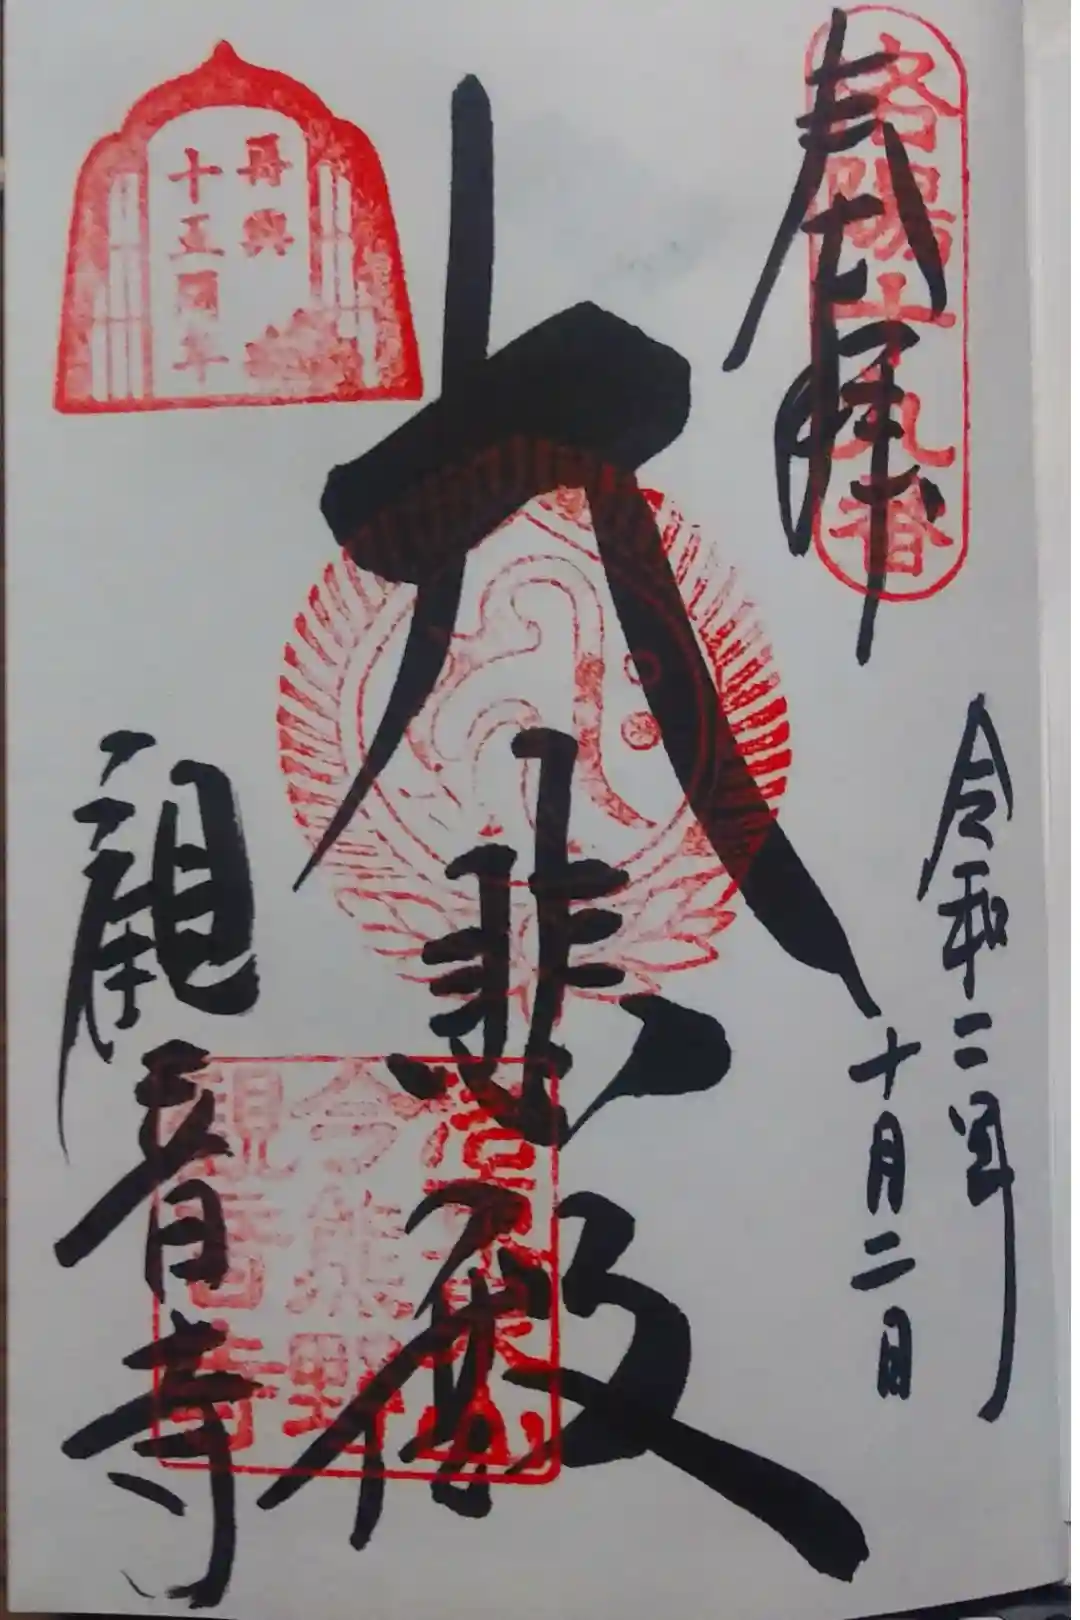 奉拝
洛陽十九番
令和二年
十月二日
大悲殿
観音寺
再興
十五周年
洛
山
今熊野
観音寺